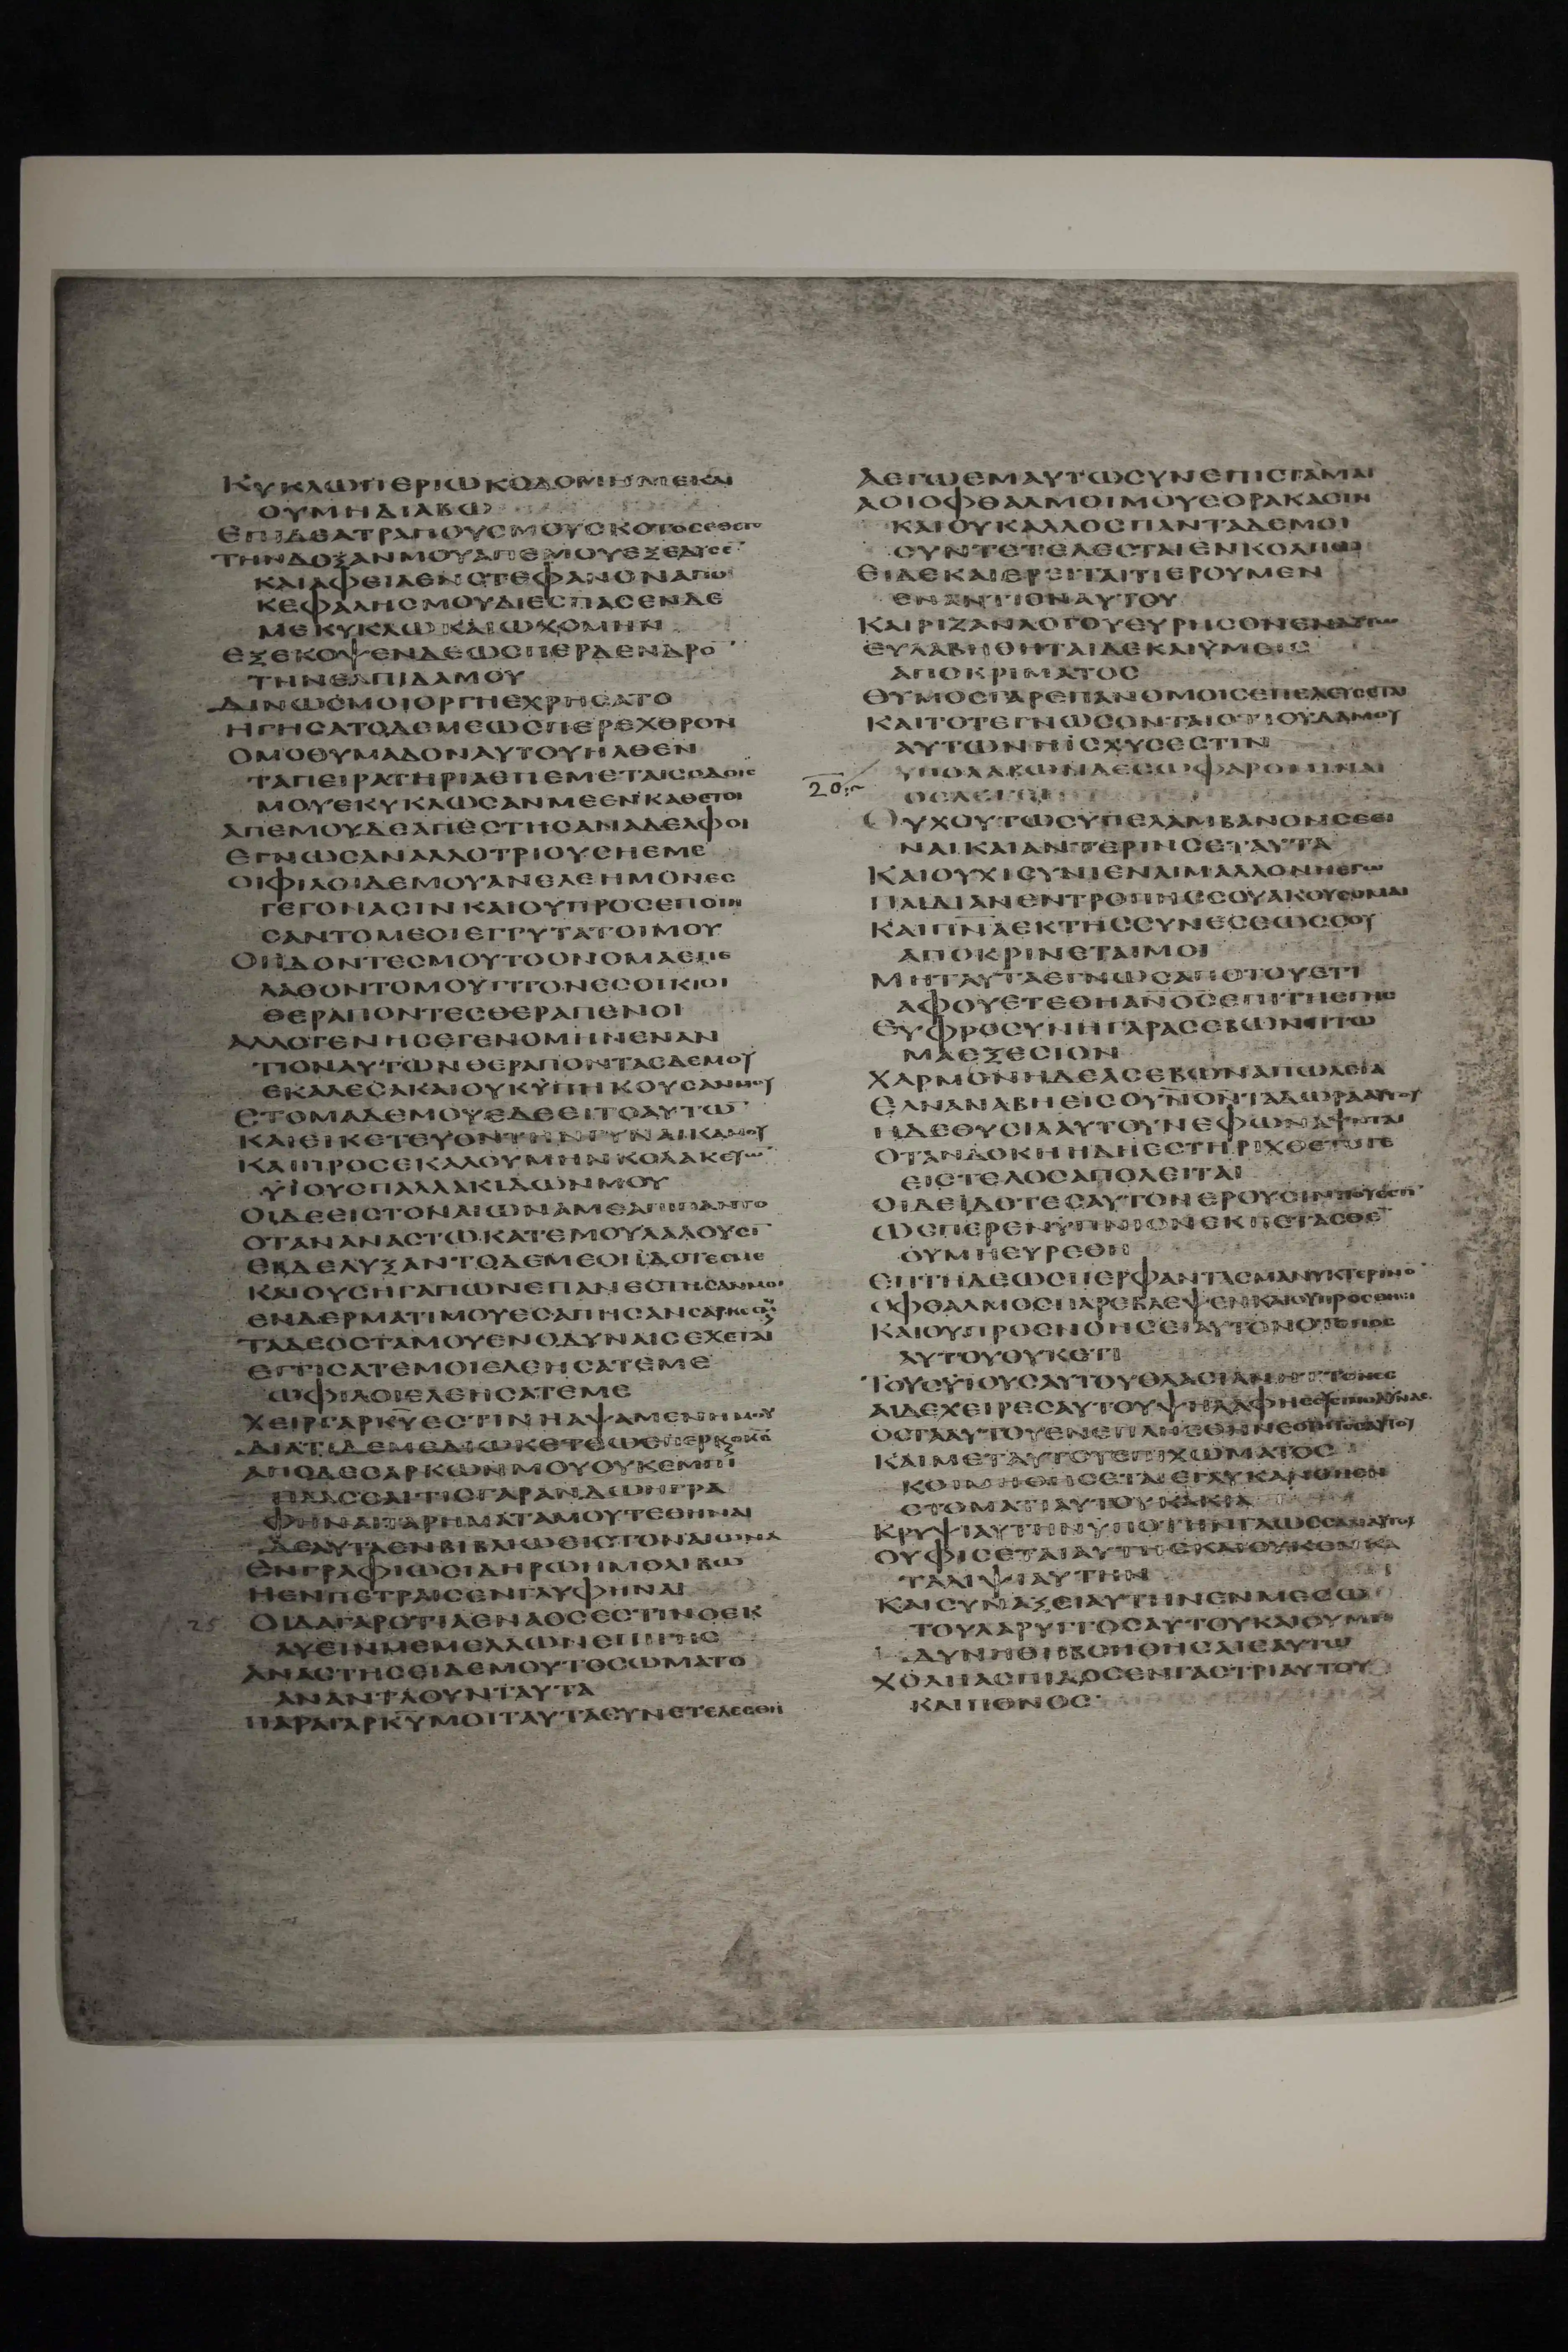 ΚΥΚΛΩΠΕΡΙΩΚΟΔΟΜΗΜΕΚΑΙ
ΟΥΜΗΔΙΑΒΩ
ΕΠΙΔΕΑΤΡΑΠΟΥСΜΟΥСΚΟΤΟСΕΘΕΤΟ
ΤΗΝΔΟΞΑΝΜΟΥΑΠΕΜΟΥΕΞΕΔΥСΕ
ΚΑΙΑΦΕΙΛΕΝСΤΕΦΑΝΟΝΑΠΟ
ΚΕΦΑΛΗСΜΟΥΔΙΕСΠΑСΕΝΔΕ
ΜΕΚΥΚΛΩΚΑΙΩΧΟΜΗΝ
ΕΞΕΚΟΨΕΝΔΕΩСΠΕΡΔΕΝΔΡΟ
ΤΗΝΕΛΠΙΔΑΜΟΥ
ΔΙΝΩСΜΟΙΟΡΓΗΕΧΡΗСΑΤΟ
ΗΓΗСΑΤΟΔΕΜΕΩСΠΕΡΕΧΘΡΟΝ
ΟΜΟΘΥΜΑΔΟΝΑΥΤΟΥΗΛΘΕΝ
ΤΑΠΕΙΡΑΤΗΡΙΑΕΠΕΜΕΤΑΙСΟΔΟΙС
ΜΟΥΕΚΥΚΛΩСΑΝΜΕΕΝΚΑΘΕΤΟΙ
ΑΠΕΜΟΥΔΕΑΠΕСΤΗСΑΝΑΔΕΛΦΟΙ
ΕΓΝΩСΑΝΑΛΛΟΤΡΙΟΥСΗΕΜΕ
ΟΙΦΙΛΟΙΔΕΜΟΥΑΝΕΛΕΗΜΟΝΕС
ΓΕΓΟΝΑСΙΝΚΑΙΟΥΠΡΟСΕΠΟΙΗ
СΑΝΤΟΜΕΟΙΕΓΓΥΤΑΤΟΙΜΟΥ
ΟΙΙΔΟΝΤΕСΜΟΥΤΟΟΝΟΜΑΕΠΕ
ΛΑΘΟΝΤΟΜΟΥΓΙΤΟΝΕСΟΙΚΙΟΙ
ΘΕΡΑΠΟΝΤΕСΘΕΡΑΠΕΝΟΙ
ΑΛΛΟΓΕΝΗСΕΓΕΝΟΜΗΝΕΝΑΝ
ΤΙΟΝΑΥΤΩΝΘΕΡΑΠΟΝΤΑСΔΕΜΟΥ
ΕΚΑΛΕСΑΚΑΙΟΥΚΥΠΗΚΟΥСΑΝΜΟΥ
СΤΟΜΑΔΕΜΟΥΕΔΕΕΙΤΟΑΥΤΩ
ΚΑΙΕΙΚΕΤΕΥΟΝΤΗΝΓΥΝΑΙΚΑΜΟΥ
ΚΑΙΠΡΟСΕΚΑΛΟΥΜΗΝΚΟΛΑΚΕΥΩ
ΥΙΟΥСΠΑΛΛΑΚΙΔΩΝΜΟΥ
ΟΙΔΕΕΙСΤΟΝΑΙΩΝΑΜΕΑΠΙΠΑΝΤΟ
ΟΤΑΝΑΝΑСΤΩΚΑΤΕΜΟΥΛΑΛΟΥСΙ
ΕΒΔΕΛΥΞΑΝΤΟΔΕΜΕΟΙΙΔΟΤΕСΜΕ
ΚΑΙΟΥСΗΓΑΠΩΝΕΠΑΝΕСΤΗСΑΝΜΟΙ
ΕΝΔΕΡΜΑΤΙΜΟΥΕСΑΠΗСΑΝСΑΡΚΕС
ΤΑΔΕΟСΤΑΜΟΥΕΝΟΔΥΝΑΙСΕΧΕΤΑΙ
ΕΓΓΙСΑΤΕΜΟΙΕΛΕΗСΑΤΕΜΕ
ΩΦΙΛΟΙΕΛΕΗСΑΤΕΜΕ
ΧΕΙΡΓΑΡΚΥΕСΤΙΝΗΑΨΑΜΕΝΗΜΟΥ
ΔΙΑΤΙΔΕΜΕΔΙΩΚΕΤΕΩСΠΕΡΚΟΚС
ΑΠΟΔΕСΑΡΚΩΝΜΟΥΟΥΚΕΜΠΙ
ΠΛΑСΘΑΙΤΙСΓΑΡΑΝΔΩΗΓΡΑ
ΦΗΝΑΙΤΑΡΗΜΑΤΑΜΟΥΤΕΘΗΝΑΙ
ΔΕΑΥΤΑΕΝΒΙΒΛΙΩΕΙСΤΟΝΑΙΩΝΑ
ΕΝΓΡΑΦΙΩСΙΔΗΡΩΗΜΟΛΙΒΩ
ΗΕΝΠΕΤΡΑΙСΕΝΓΛΥΦΗΝΑΙ
25 ΟΙΔΑΓΑΡΟΤΙΑΕΝΑΟСΕСΤΙΝΟΕΚ
ΛΥΕΙΝΜΕΜΕΛΛΩΝΕΠΙΓΗС
ΑΝΑСΤΗСΕΙΔΕΜΟΥΤΟСΩΜΑΤΟ
ΑΝΑΝΤΛΟΥΝΤΑΥΤΑ
ΠΑΡΑΓΑΡΚΥΜΟΙΤΑΥΤΑСΥΝΕΤΕΛΕСΘΗ
ΑΕΓΩΕΜΑΥΤΩСΥΝΕΠΙСΤΑΜΑΙ
ΑΟΙΟΦΘΑΛΜΟΙΜΟΥΕΟΡΑΚΑСΙΝ
ΚΑΙΟΥΚΑΛΛΟСΠΑΝΤΑΔΕΜΟΙ
СΥΝΤΕΤΕΛΕСΤΑΙΕΝΚΟΛΠΩ
ΕΙΔΕΚΑΙΕΡΕΙΤΑΙΤΙΕΡΟΥΜΕΝ
ΕΝΑΝΤΙΟΝΑΥΤΟΥ
ΚΑΙΡΙΖΑΝΛΟΓΟΥΕΥΡΗСΟΜΕΝΕΝΑΥΤΩ
ΕΥΛΑΒΗΘΗΤΑΙΔΕΚΑΙΥΜΕΙС
ΑΠΟΚΡΙΜΑΤΟС
ΘΥΜΟСΓΑΡΕΠΑΝΟΜΟΙСΕΠΕΛΕΥСΕΤΑΙ
ΚΑΙΤΟΤΕΓΝΩСΟΝΤΑΙΟΤΙΟΥΔΑΜΟΥ
ΑΥΤΩΝΗΙСΧΥСΕСΤΙΝ
20 ΥΠΟΛΑΒΩΝΔΕСΩΦΑΡΟΜΙΝΑΙ
ΟСΛΕΓΕΙ
ΟΥΧΟΥΤΩСΥΠΕΛΑΜΒΑΝΟΝСΕΕΙ
ΝΑΙΚΑΙΑΝΤΕΡΙΝСΕΤΑΥΤΑ
ΚΑΙΟΥΧΙСΥΝΙΕΝΑΙΜΑΛΛΟΝΗΕΓΩ
ΠΑΙΔΙΑΝΕΝΤΡΟΠΗССΟΥΑΚΟΥСΟΜΑΙ
ΚΑΙΠΝΑΕΚΤΗССΥΝΕСΕΩССΟΥ
ΑΠΟΚΡΙΝΕΤΑΙΜΟΙ
ΜΗΤΑΥΤΑΕΓΝΩСΑΠΟΤΟΥΕΤΙ
ΑΦΟΥΕΤΕΘΗΑΝΟСΕΠΙΤΗСΓΗС
ΕΥΦΡΟСΥΝΗΓΑΡΑСΕΒΩΝΠΤΩ
ΜΑΕΞΕСΙΟΝ
ΧΑΡΜΟΝΗΔΕΑСΕΒΩΝΑΠΩΛΕΙΑ
ΕΑΝΑΝΑΒΗΕΙСΟΥΝΟΝΤΑΔΩΡΑΑΥΤΟΥ
ΗΔΕΘΥСΙΑΑΥΤΟΥΝΕΦΩΝΑΨΗΤΑΙ
ΟΤΑΝΔΟΚΗΗΔΗΕСΤΗΡΙΧΘΕΤΟΤΕ
ΕΙСΤΕΛΟСΑΠΟΛΕΙΤΑΙ
ΟΙΔΕΙΔΟΤΕСΑΥΤΟΝΕΡΟΥСΙΝΠΟΥΕСΤΙ
ΩСΠΕΡΕΝΥΠΝΙΟΝΕΚΠΕΤΑСΘΕ
ΟΥΜΗΕΥΡΕΘΗ
ΕΠΤΗΔΕΩСΠΕΡΦΑΝΤΑСΜΑΝΥΚΤΕΡΙΝΟ
ΟΦΘΑΛΜΟСΠΑΡΕΒΛΕΨΕΝΚΑΙΟΥΠΡΟСΘΗСΙ
ΚΑΙΟΥΠΡΟСΝΟΗСΕΙΑΥΤΟΝΟΤΟΠΟС
ΑΥΤΟΥΟΥΚΕΤΙ
ΤΟΥСΥΙΟΥСΑΥΤΟΥΘΛΑСΙΑΝΗΤΤΟΝΕС
ΑΙΔΕΧΕΙΡΕСΑΥΤΟΥΨΗΛΑΦΗСΕСΙΠΟΔΥΝΑС
ΟСΤΑΑΥΤΟΥΕΝΕΠΛΗСΘΗΝΕΟΤΗΤΟСΑΥΤΟΥ
ΚΑΙΜΕΤΑΥΤΟΥΕΠΙΧΩΜΑΤΟС
ΚΟΙΜΗΘΗСΕΤΑΙΕΓΛΥΚΑΝΘΗΕΝ
СΤΟΜΑΤΙΑΥΤΟΥΚΑΚΙΑ
ΚΡΥΨΙΑΥΤΗΝΥΠΟΤΗΝΓΛΩССΑΝΑΥΤΟΥ
ΟΥΦΙСΕΤΑΙΑΥΤΗСΚΑΙΟΥΚΕΝΚΑ
ΤΑΛΙΨΙΑΥΤΗΝ
ΚΑΙСΥΝΑΞΕΙΑΥΤΗΝΕΝΜΕСΩ
ΤΟΥΛΑΡΥΓΓΟСΑΥΤΟΥΚΑΙΟΥΜΗ
ΔΥΝΗΘΗΒΟΗΘΗСΑΙΕΑΥΤΩ
ΧΟΛΗΑСΠΙΔΟСΕΝΓΑСΤΡΙΑΥΤΟΥ
ΚΑΙΠΟΝΟС